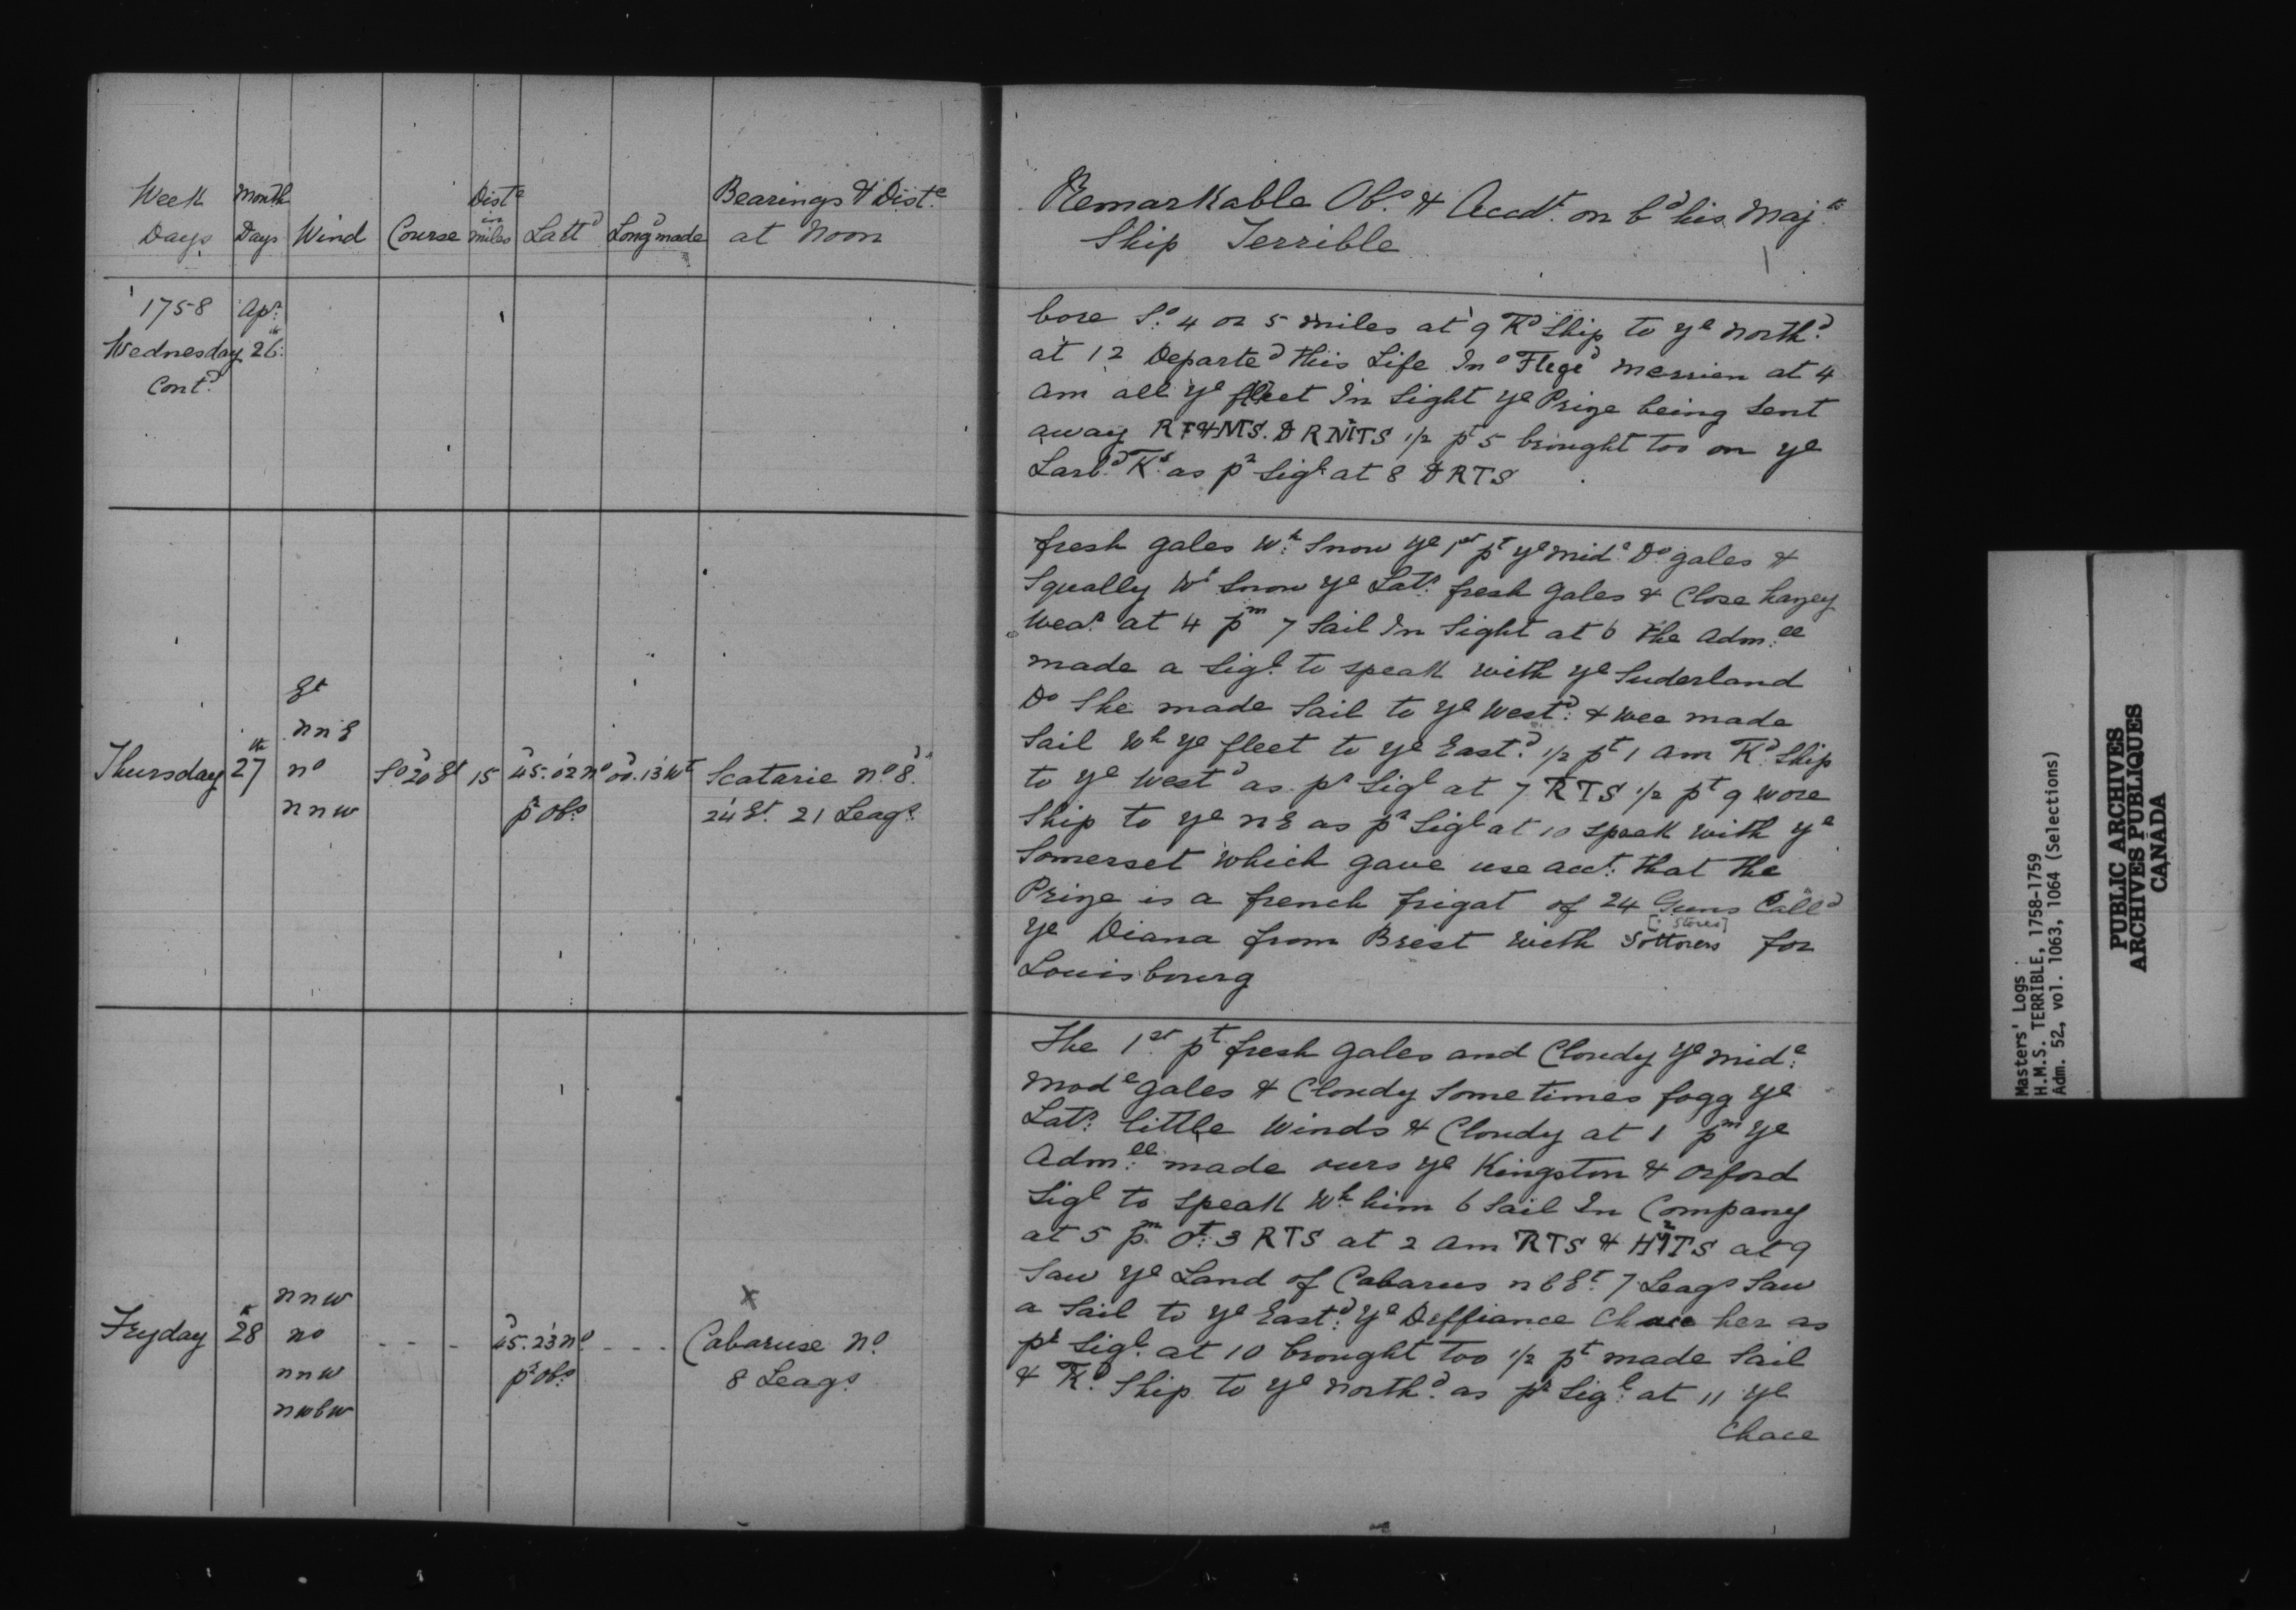 Week Days
Month Days
Wind
Course
Dist.e in miles
Latt.d
Long.d made
Bearings & Dist.e at Noon
1758 Ap.r
Wednesday 26.th
Cont.d
Thursday 27th
Et
nnE
no
nnw
So 20d Et
15
45.02 no
pr obs
00.13 wt
Scatarie no 8d
24 Et. 21 Leags
Fryday 28th
nnw
no
nnw
nwbw
- - -
45.23 no
pr obs
- - -
x
Cabaruse no
8 Leags
Remarkable Obs. & Accdt. on bd his Maj.ts
Ship Terrible
bore So. 4 or 5 miles at 9 Kd Ship to ye northd.
at 12 Departed this Life Ino Merrien at 4
am all ye fleet In Sight ye Prize being Sent
away 1/2 pt 5 brought too on ye
Larbd Ks. as pr Sigl. at 8 DRTS
fresh gales wh. Snow ye 1st pt ye mide. Do gales &
Squally wt Snow ye Latr. fresh gales & Close hazey
wear. at 4 pm 7 Sail In Sight at 6 the Adm.ll
made a Sigl. to speak with ye Suderland
Do She made Sail to ye westd. & wee made
Sail wh ye fleet to ye Eastd. 1/2 pt 1 am Kd. Ship
to ye westd as pr Sigl at 7 RTS 1/2 pt 9 wore
Ship to ye nE as pr Sigl at 10 speek with ye
Somerset which gave use acct. that the
Prize is a french frigat of 24 Guns Calld
[: Stores]
ye Diana from Brest with Sottores for
Louisbourg
The 1st. pt fresh gales and Cloudy ye mide.
mode gales & Cloudy Sometimes fogg ye
Latr. little winds & Cloudy at 1 pm ye
Adm.ll made ours ye Kingston & Orford
Sigl to speak wh. him 6 Sail In Company
at 5 pm 3 RTS at 2 am RTS & at 9
Saw ye Land of Cabarus nbEt. 7 Leags Saw
a Sail to ye Eastd. ye Deffiance Chace her as
pr Sigl. at 10 brought too 1/2 pt made Sail
& Kd. Ship to ye northd. as pr Sigl. at 11 ye
Chace
Masters' Logs
H.M.S. TERRIBLE, 1758-1759
Adm. 52, vol. 1063, 1064 (Selections)
PUBLIC ARCHIVES
ARCHIVES PUBLIQUES
CANADA